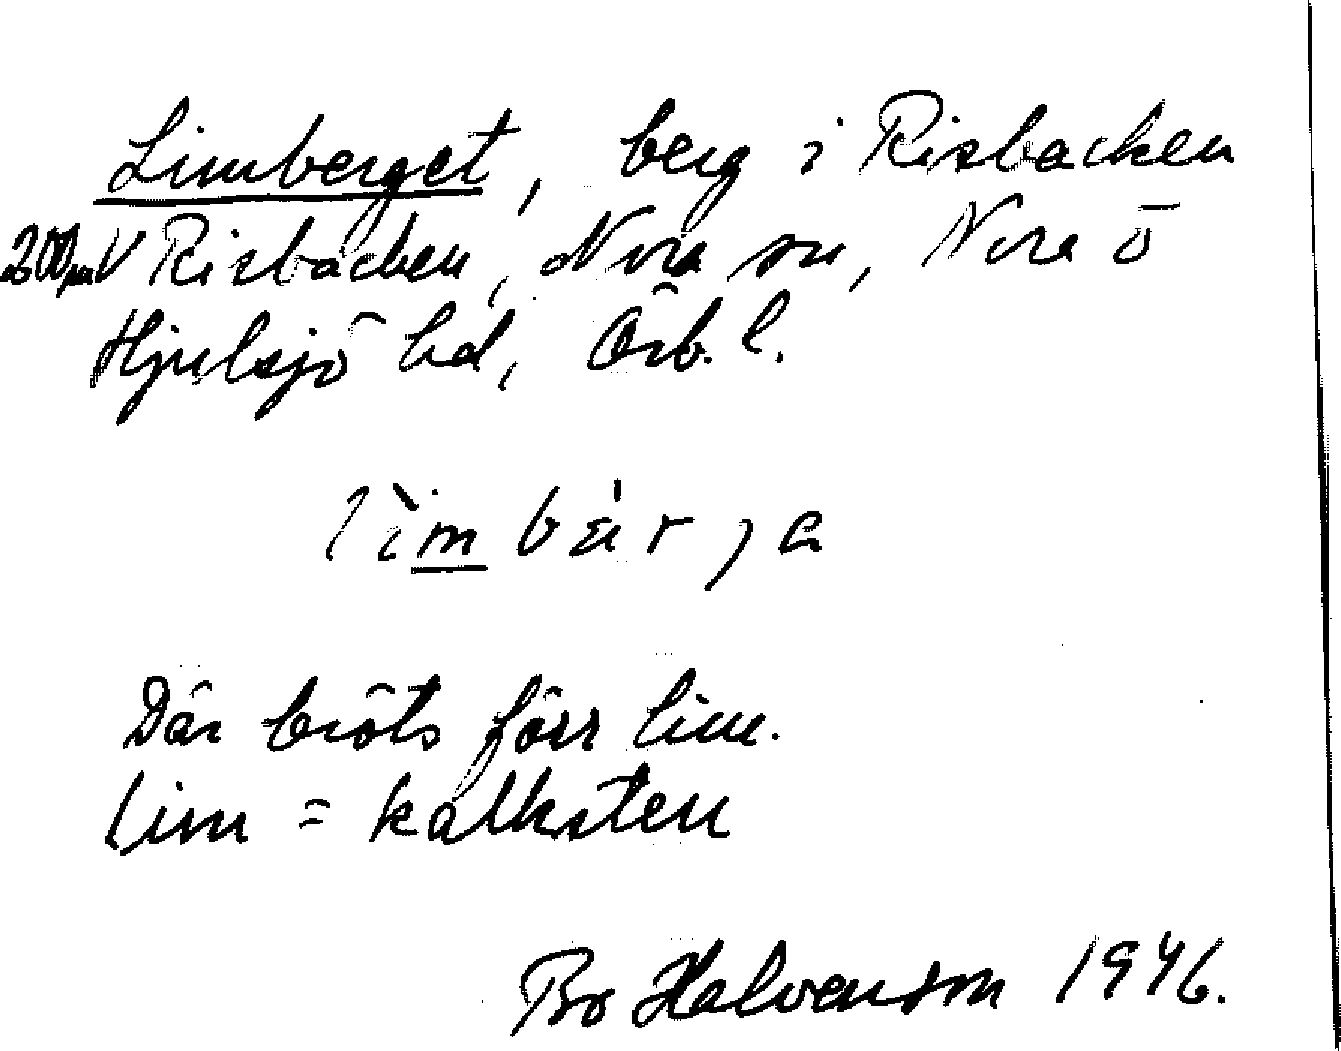 Limberget, berg i Risbacken
200 m V Risbacken, Nora sn, Nora o
Hjulsjö hd, Örb. l.
lìmbár̨ja
Där bröts förr lim.
Lim = kalksten
Bo Halvenson 1946.